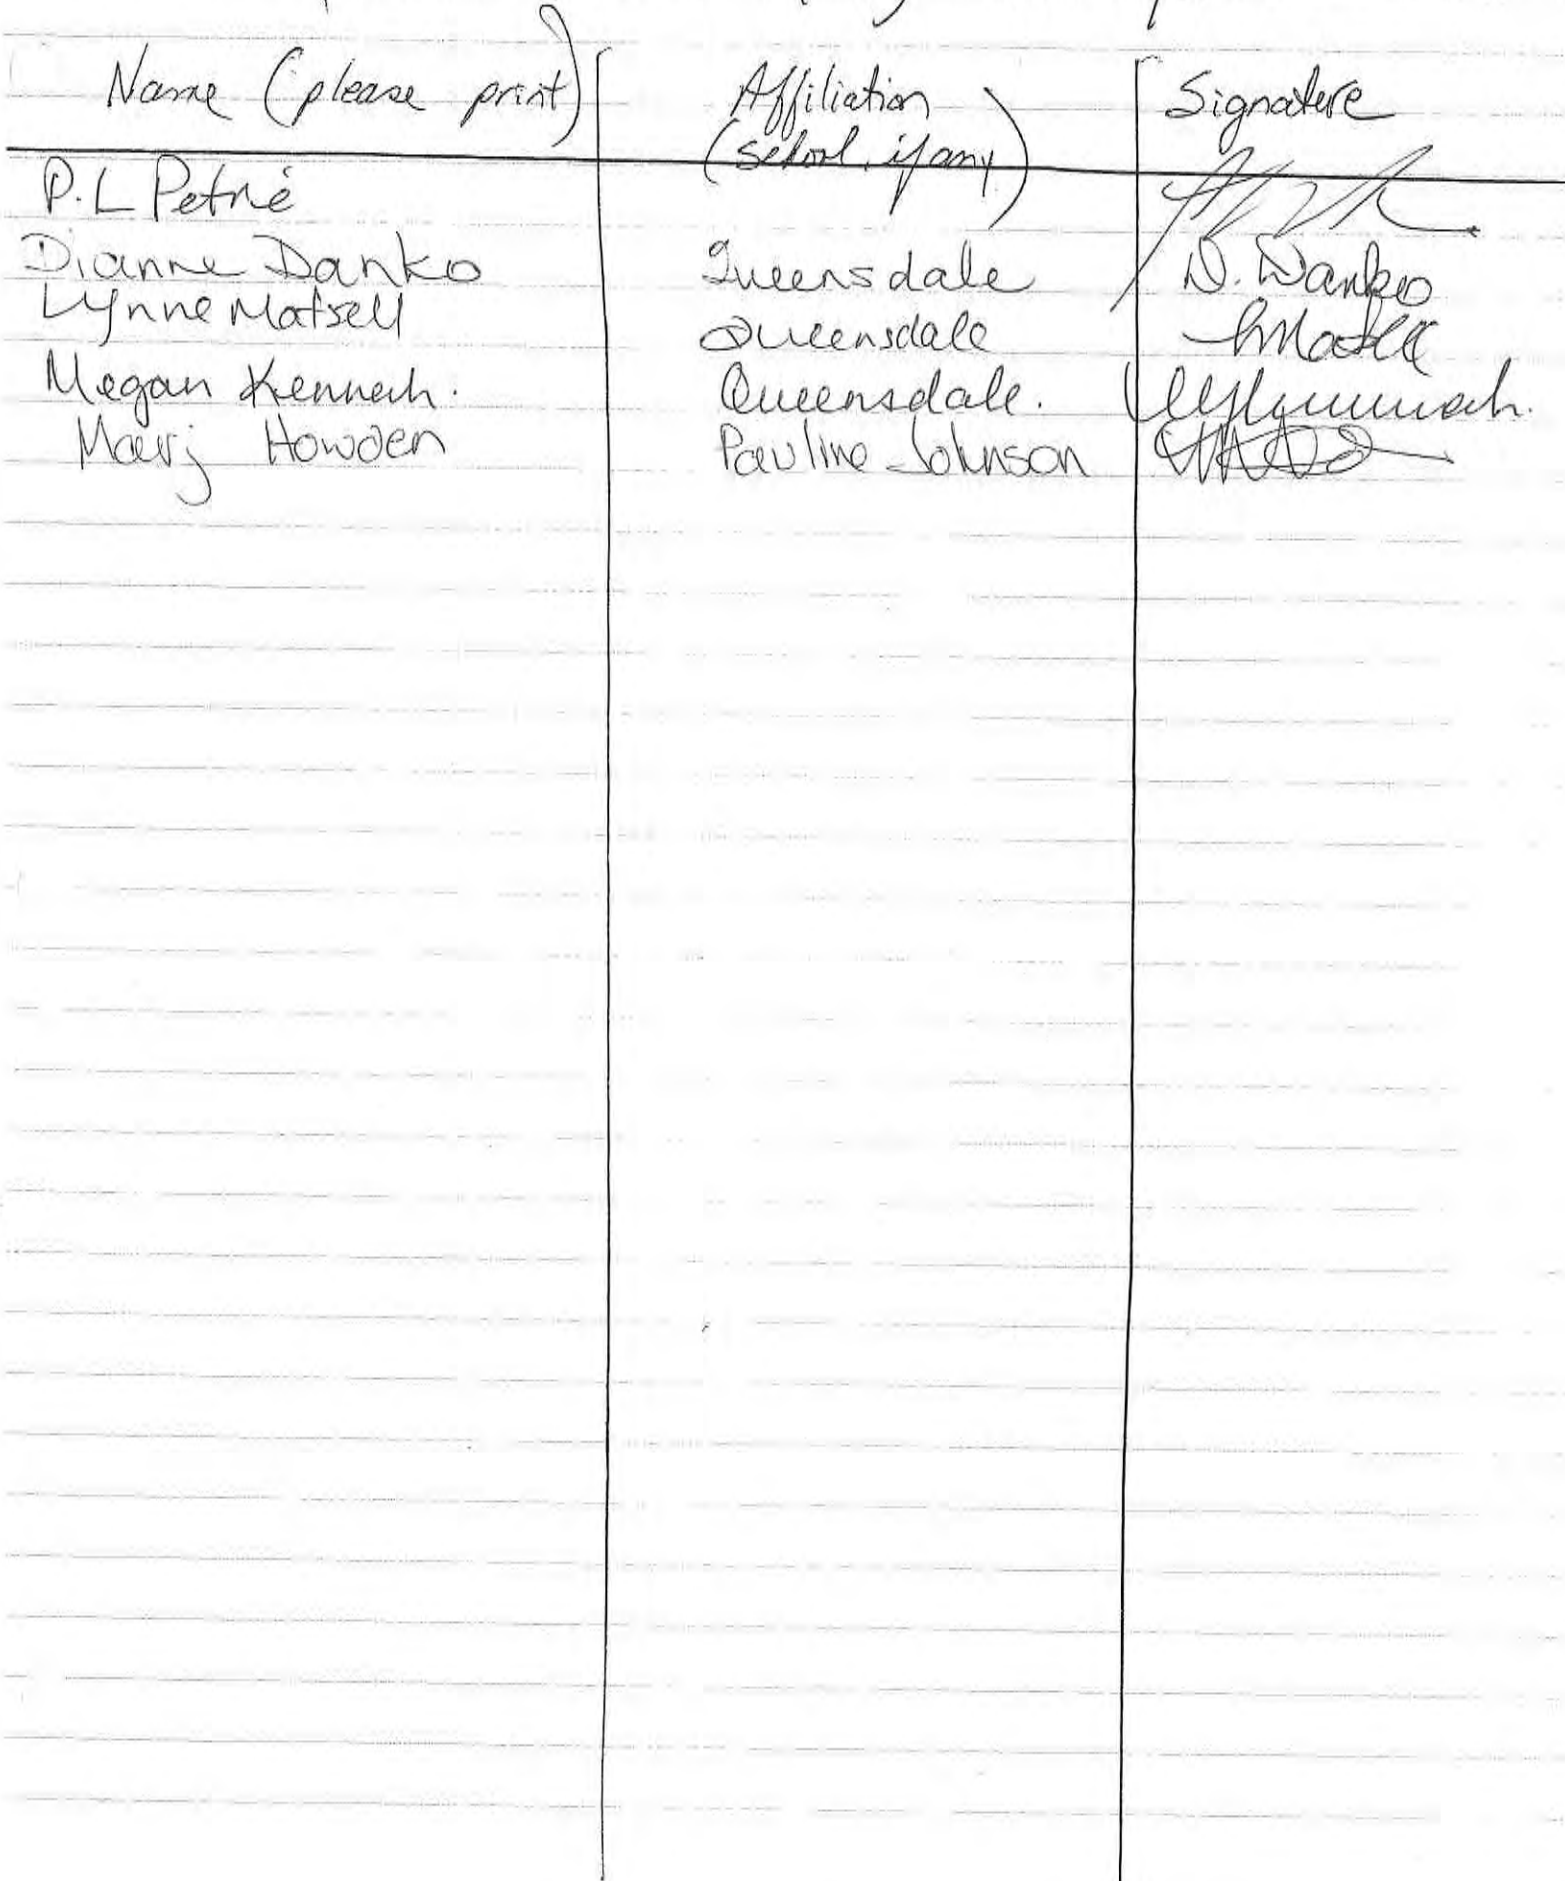 Name (please print) Affiliation Signature
(school, if any)
P.L Petrie
Dianne Danko Queensdale D. Danko
Lynne Matsell Queensdale LMatsell
Megan Kennach. Queensdale.
Marj Howden Pauline Johnson